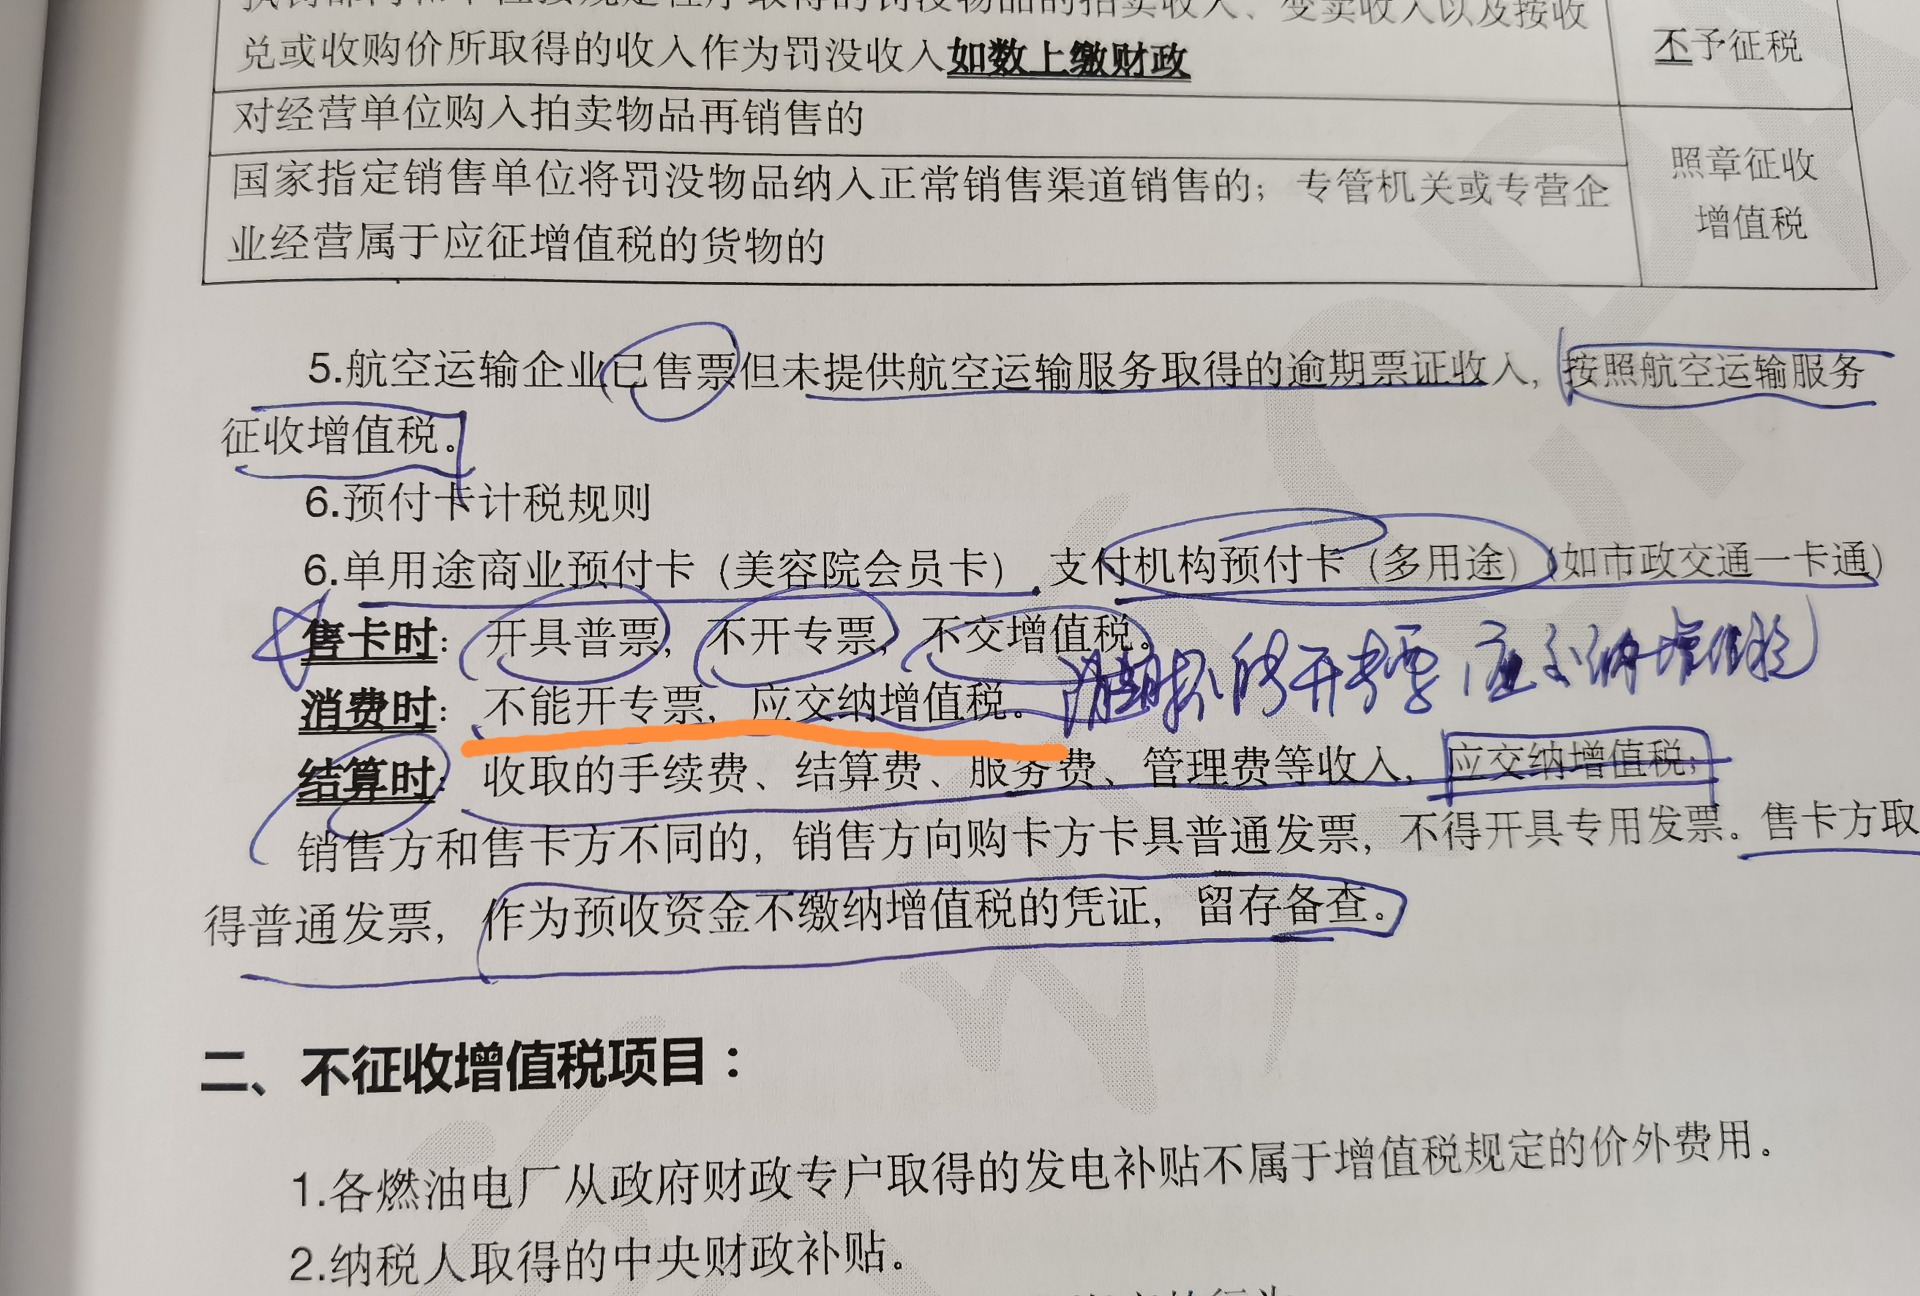 兑或收购价所取得的收入作为罚没收入如数上缴财政
不予征税
对经营单位购入拍卖物品再销售的
国家指定销售单位将罚没物品纳入正常销售渠道销售的；专管机关或专营企
业经营属于应征增值税的货物的
照章征收
增值税
5.航空运输企业已售票但未提供航空运输服务取得的逾期票证收入，按照航空运输服务
征收增值税。
6.预付卡计税规则
6.单用途商业预付卡（美容院会员卡）支付机构预付卡（多用途）（如市政交通一卡通）
售卡时：开具普票，不开专票，不交增值税。
消费时：不能开专票，应交纳增值税。
开专票 应交纳增值税
结算时：收取的手续费、结算费、服务费、管理费等收入，应交纳增值税；
销售方和售卡方不同的，销售方向购卡方卡具普通发票，不得开具专用发票。售卡方取
得普通发票，作为预收资金不缴纳增值税的凭证，留存备查。
二、不征收增值税项目：
1.各燃油电厂从政府财政专户取得的发电补贴不属于增值税规定的价外费用。
2.纳税人取得的中央财政补贴。